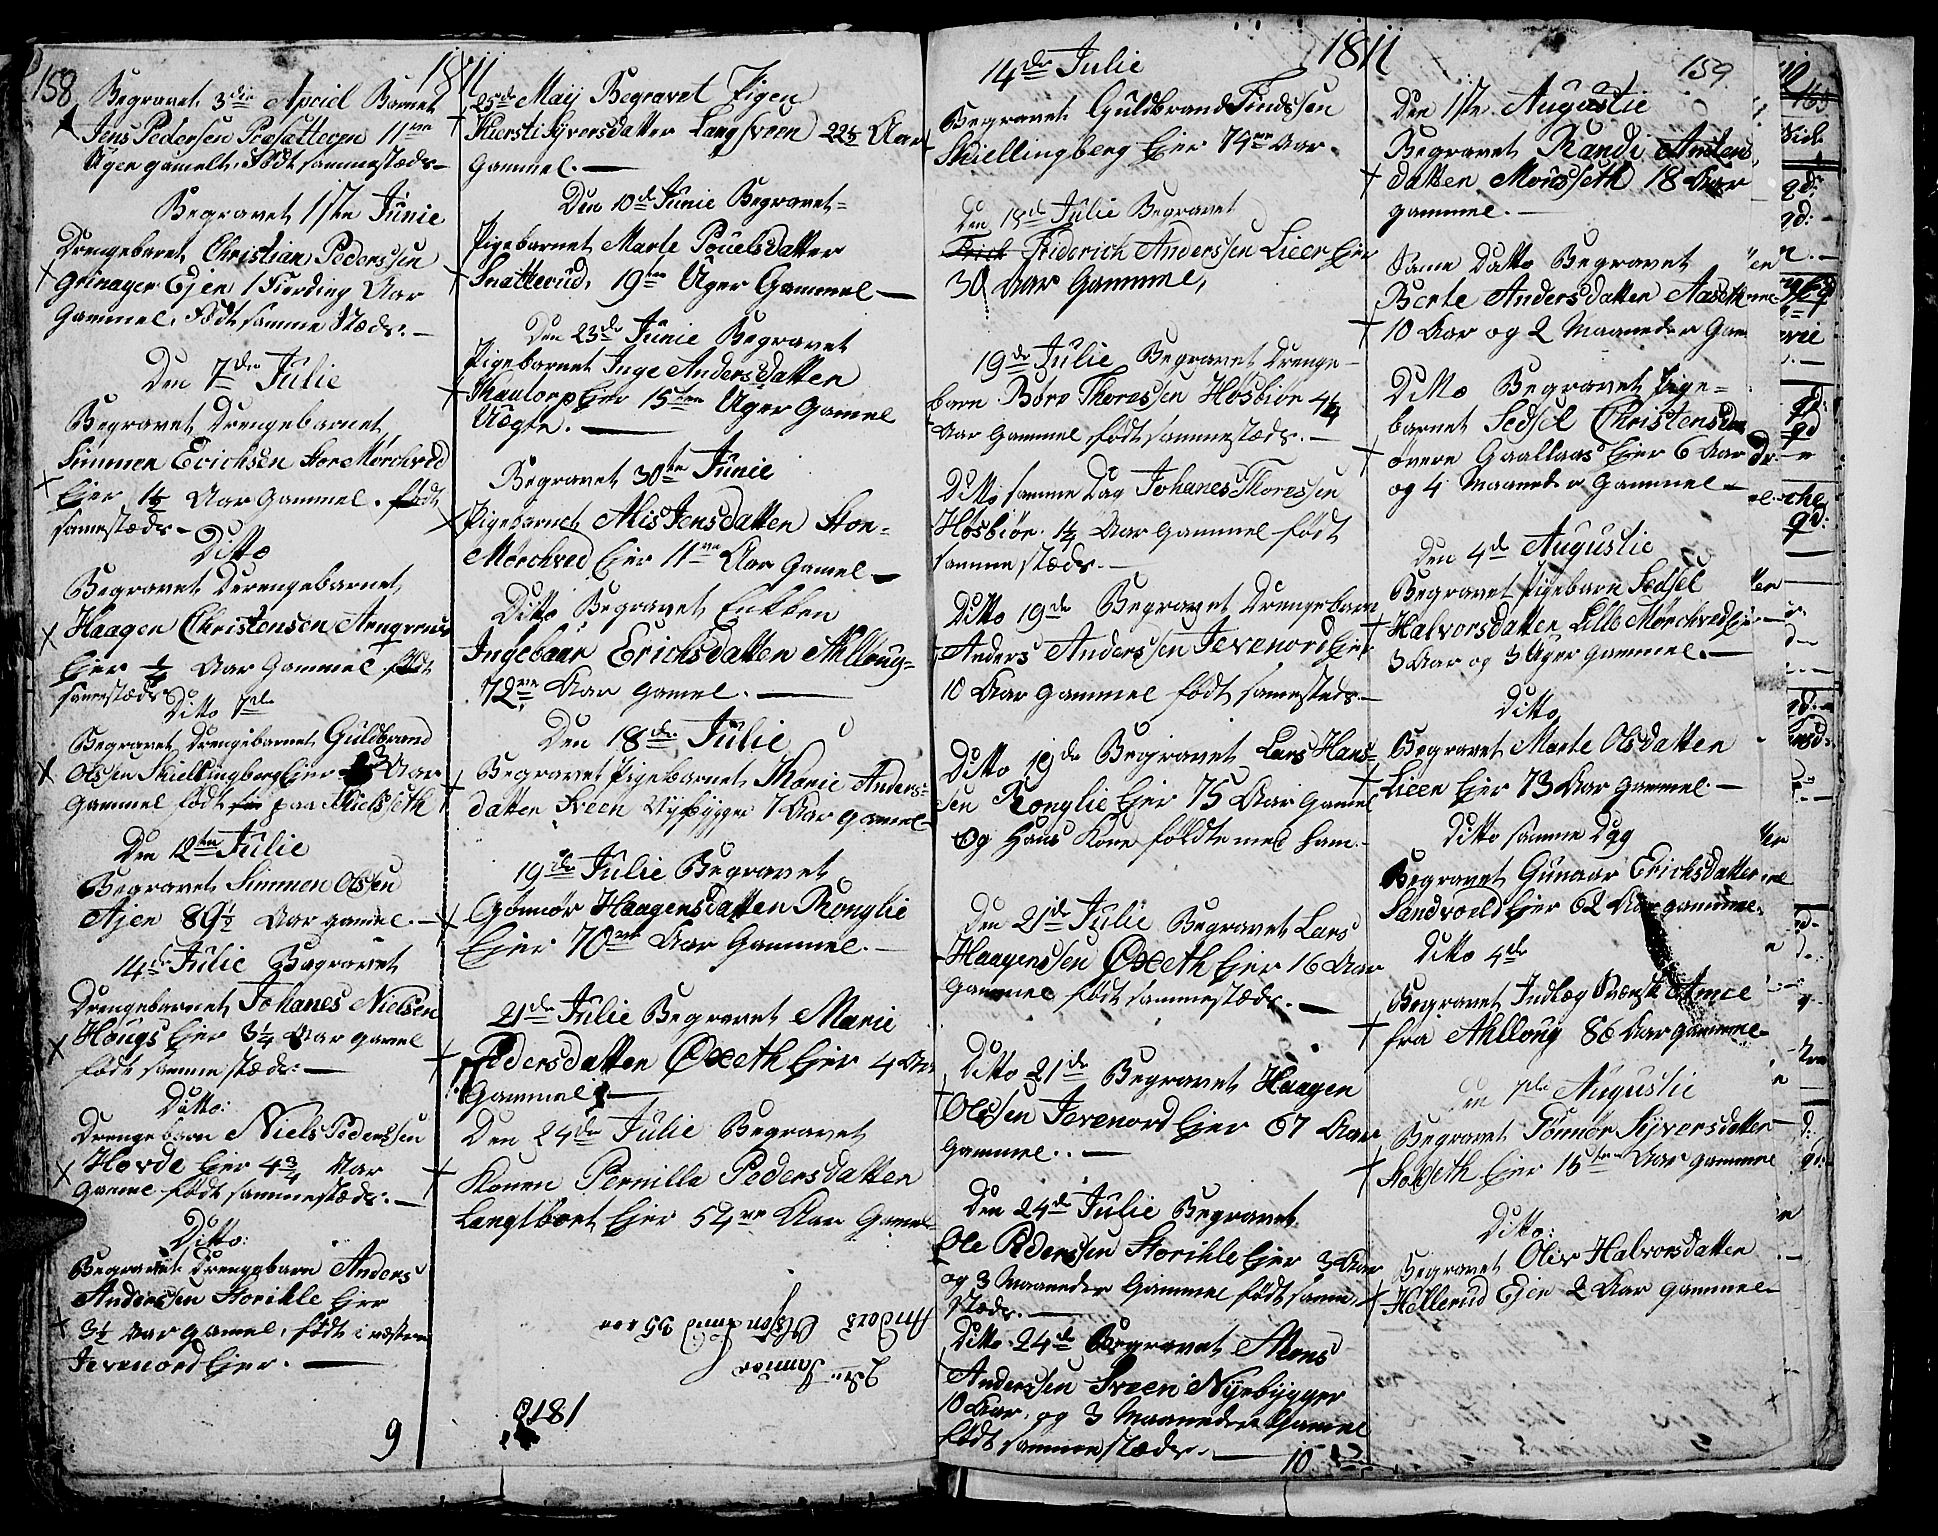 158
1811
Begravet 3die Apriel Barnet
Jens Pedersen Præsatteren 11ve
Uger gamelt. Født sammestæds
Begravet 1ste Junie
Drengebarnet Christian Pederssen
Grinager Ejen 1 Fierding Aar
Gammel. Født samme Stæds.
Den 7de Julie
Begravet Drengebarnet
Simmen Erichsen Stor Mørchved
Ejer 1½ Aar Gammel. født
samestæds
Ditto
Begravet Derengebarnet
Haagen Christensen
Ejer ¼ Aar Gammel født
samestæds
Ditto 7de
Begravet Drengebarnet Guldbrand
Olssen Skiellingberg Ejer Aar
Gammel født paa Kielsseth
Den 12te Julie
Begravet Simmen Olssen
Ajen 89½ Aar gamel.
14de Julie Begravet
Drengebarnet Johanes Nielsen
Hougs Ejer 3¼ Aar gamel
født samme stæds
Ditto:
Drengebarn Niels Pederssen
Hovde Ejer 4¾ Aar
Gamel født sammestæds.
Ditto:
Begravet Drengebarn Anders
Anderssen Storikle Ejer
3½ Aar gamel, født i næstre
Jevenord Ejer.
9
25de Maij Begravet Pigen
Kiersti Syversdatter Langsveen 22½ Aar
Gammel.
Den 10de Junie Begravet
Pigebarnet Marte Pouelsdatter
Snatterud, 19ten Uger Gammel
Den 23de Junie Begravet
Pigebarnet Inge Andersdatten
Skautorp Ejer 15ten Uger Gamel
Uægte.
Begravet 30te Junie
Pigebarnet Alis Jensdatten Stor-
Mørchved Ejer 11ve Aar Gamel
Ditto Begravet Enkken
Ingebaar Erichsdatten Ahlloug
72ve Aar gamel.
Den 18de Julie
Begravet Pigebarnet Marie Anders-
datten Sveen Nyebygger 7 Aar Gamel
19de Julie Begravet
Gønnør Haagensdatten Ronglie
Ejer 70ve Aar Gammel.
21de Julie Begravet Marie
Pedersdatten Oxeth Ejer 4 Aar
Gammel
Den 24de Julie Begravet
Konen Pernille Pedersdatten
Langlboet Ejer 54ve Aar Gamel
Januar
Anders 35 aar
181
1811
14de Julie
Begravet Guldbrand Findssen
Skiellingberg Ejer 74ve Aar.
Den 18de Julie Begravet
Friderich Anderssen Lieer Ejer
30 Aar Gammel,
19de Julie Begravet Drenge-
barn Børe Thoressen Høsbiør 4¼
Aar Gammel født sammestæds.
Ditto samme Dag Johanes Thoressen
Høsbiør 1¼ Aar Gammel født
samme stæds.
Ditto 19de Begravet Drengebarn
Anders Anderssen Jevenord Ejer
10 Aar Gammel født samesteds
Ditto 19de Begravet Lars Hans-
sen Ronglie Ejer 75 Aar Gamel
og Hans Kone føldte med ham.
Den 21de Julie Begravet Lars
Haagenssen Oxeth Ejer 16 Aar
Gammel født sammestæds.
Ditto 21de Begravet Haagen
Olssen Jevenord Ejer 67 Aar
Gammel.
Den 24de Julie Begravet
Ole Pederssen Storikle Ejer 3 Aar
og 3 Maaneder Gammel født samme
stæds.
Ditto 24de Begravet Mons
Anderssen Sveen Nyebygger
10 Aar, og 3 Maaneder Gamel
født samme stæds.
10
159
Den 1ste Augustie
Begravet Randi Amten
datten Mousseth 18 Aar
gammel.
Same Datto Begravet
Berte Andersdatten Aaseth
10 Aar og 2 Maaneder Gam
Ditto Begravet Pige-
barnet Sedsel Christensda
øvere Gaallaas Ejer 6 Aar
og 4 Maaneder Gammel
Den 4de Augustie
Begravet Pigebarn Sedsel
Halvorsdatten Lille Mørchved Ejer
3 Aar og 3 Uger Gammel.
Ditto
Begravet Marte Olsdatten
Lieen Ejer 73 Aar Gammel
Ditto samme Dag
Begravet Gunaar Erichsdatter
Sandvoeld Ejer 62 Aar gammel.
Ditto 4de
Begravet Indlæg Svænsk Amce
fra Ahlloug 86 Aar Gammel
Den 7de Augustie
Begravet Tønnør Syversdatter
Ejer 15ten Aar gammel
Ditto:
Begravet Oliv Halvorsdatten
Hellerud Ejer 2 Aar gammel